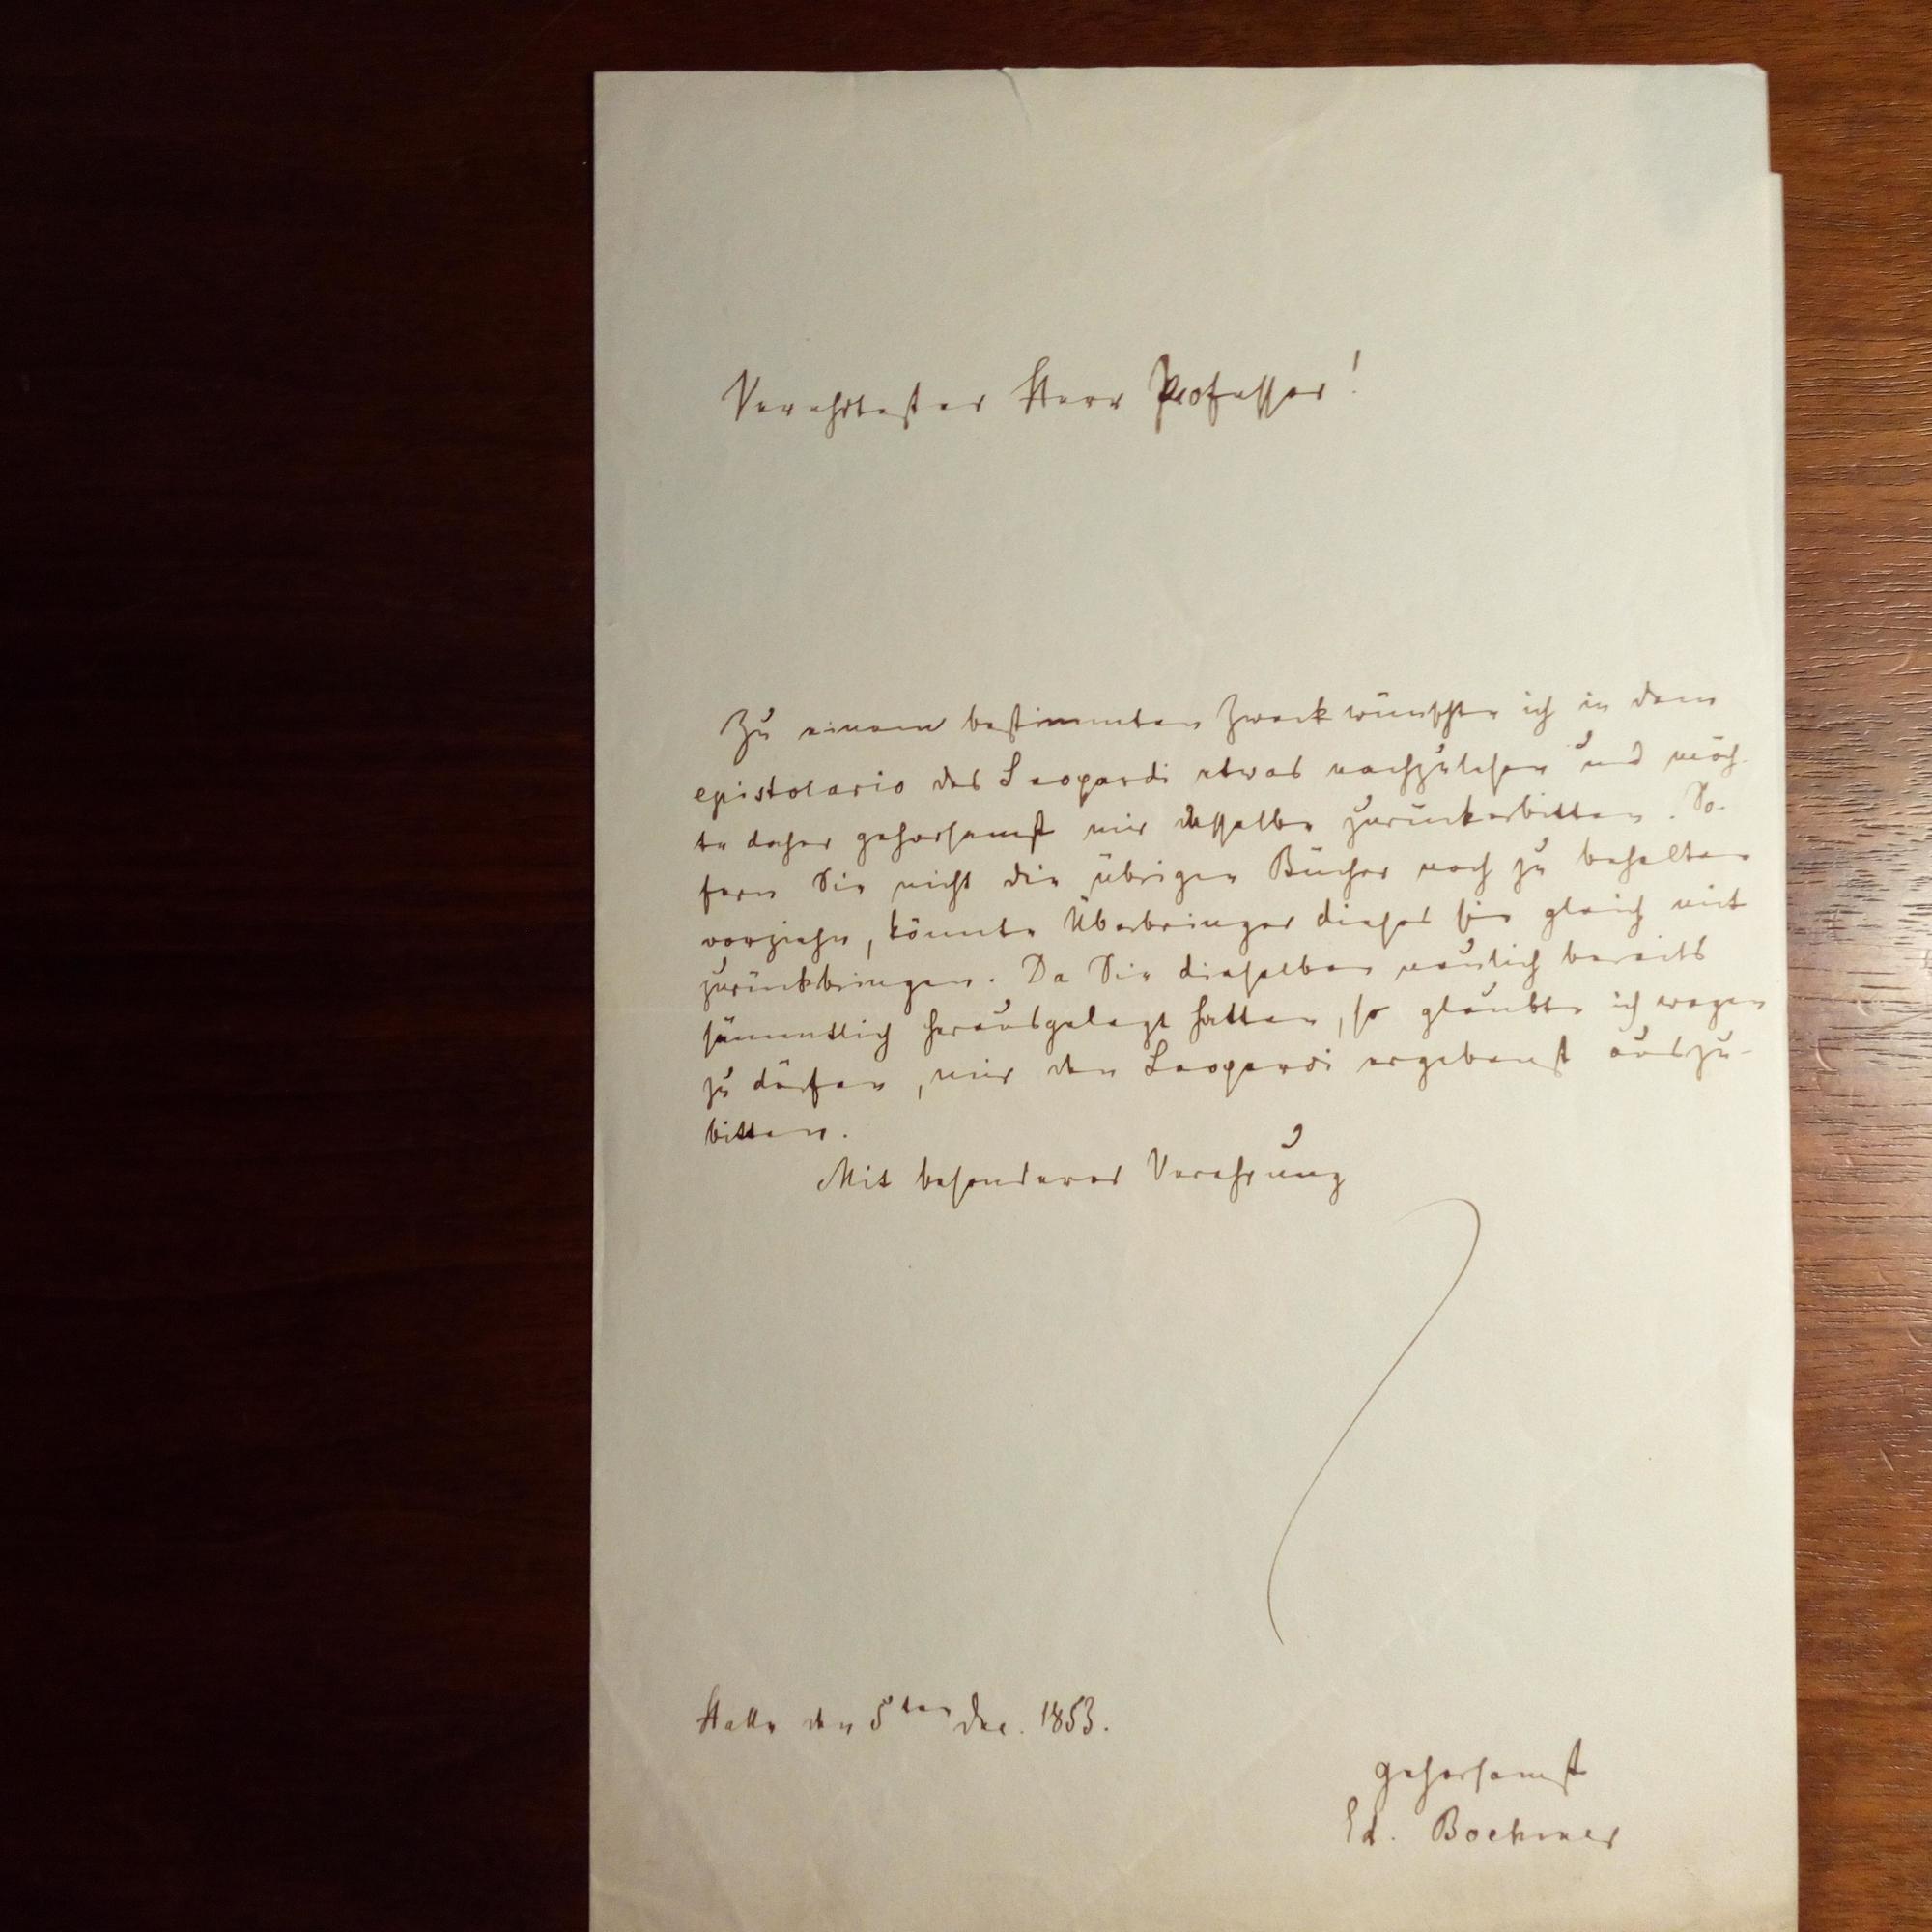 Verehrtester Herr Professor!
Zu einem bestimmten Zweck wünschte ich in dem
epistolario des Leopardi etwas nachzulesen und möch-
te daher gehorsamst mir dasselbe zurückerbitten. So-
fern Sie nicht die übrigen Bücher noch zu behalten
vorziehn, könnte Überbringer dieses sie gleich mit
zurückbringen. Da Sie dieselben neulich bereits
sämmtlich herausgelegt hatten, so glaubte ich wagen
zu dürfen, mir den Leopardi ergebenst auszu-
bitten.
Mit besonderer Verehrung
Halle den 5ten Dec. 1853.
gehorsamst
Ed. Boehmer